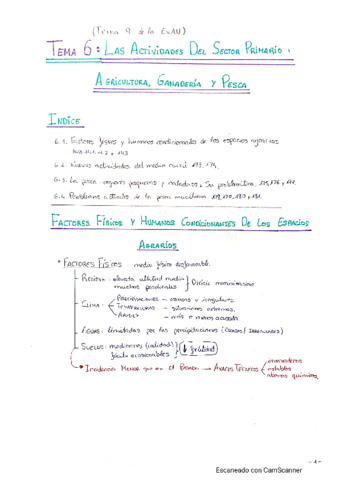 (Tema 9 de la EvAU)
TEMA 6: LAS ACTIVIDADES DEL SECTOR PRIMARIO:
AGRICULTURA, GANADERÍA Y PESCA
ÍNDICE
6.1. Factores físicos y humanos condicionantes de los espacios agrarios
6.2. Nuevas actividades del medio rural 173, 174.
6.3. La pesca: regiones pesqueras y caladeros. Su problemática,
6.4. Problemas actuales de la pesca marítima
FACTORES FÍSICOS Y HUMANOS CONDICIONANTES DE LOS ESPACIOS
AGRARIOS
* FACTORES FÍSICOS medio físico desfavorable.
- RELIEVE - elevada altitud media
muchas pendientes } Dificil mecanización
- CLIMA - PRECIPITACIONES - escasas e irregulares.
TEMPERATURAS - situaciones extremas.
ARIDEZ - más o menos acusada.
- AGUAS: limitadas por las precipitaciones (ESCASAS / IRREGULARES)
- SUELOS: mediocres (calidad)
fácile erosionables } (↓ fertilidad)
* Incidencia Menor que en el Pasado → AVANCES TÉCNICOS
invernaderos
establos
abonos químicos.
- 1 -
Escaneado con CamScanner